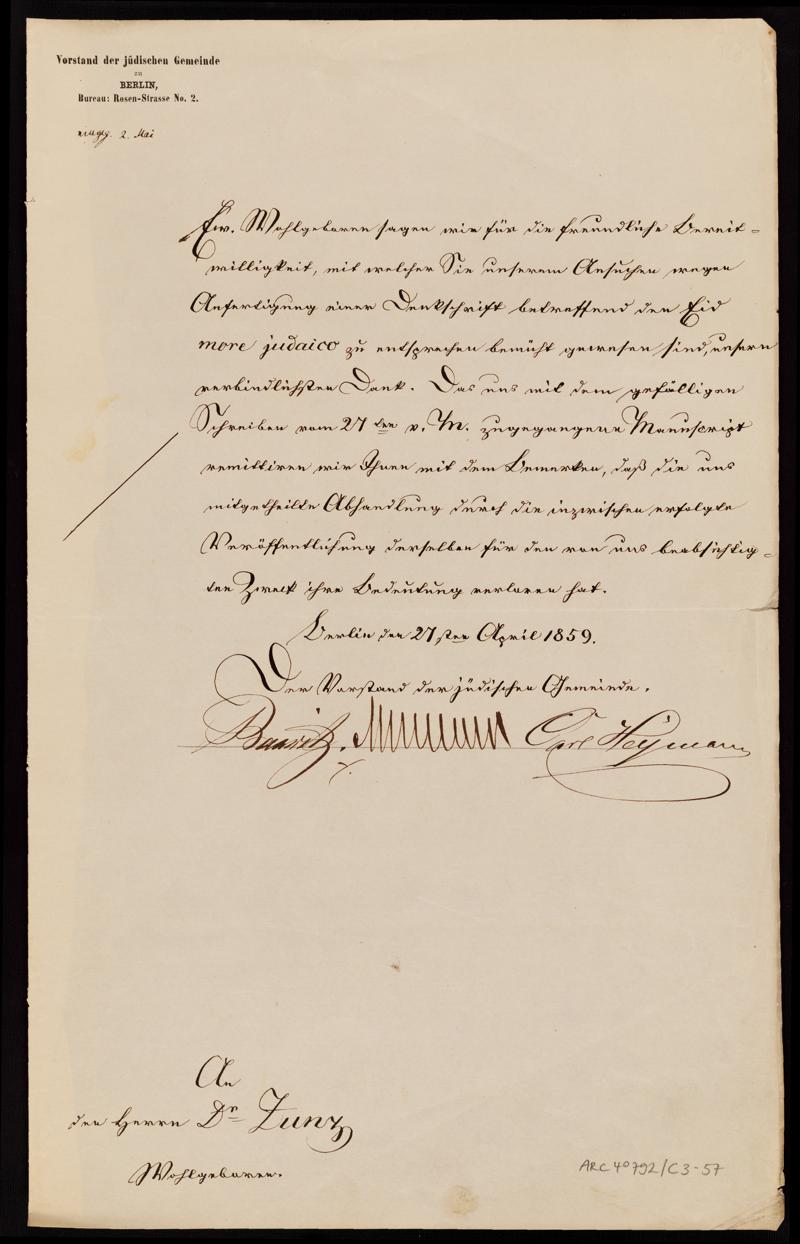 Vorstand der jüdischen Gemeinde
zu
BERLIN,
Bureau: Rosen-Strasse No. 2.
eingeg. 2. Mai
Ew. Wohlgeboren sagen wir für die freundliche Bereit-
willigkeit, mit welcher Sie unserem Ansuchen wegen
Anfertigung einer Denkschrift betreffend den Eid
more judaico zu entsprechen bemüht gewesen sind, unsern
verbindlichsten Dank. Das uns mit dem gefälligen
Schreiben vom 27 ten v. M. zugegangene Manuscript
remittiren wir Ihnen mit dem Bemerken, daß die uns
mitgetheilte Abhandlung durch die inzwischen erfolgte
Veröffentlichung derselben für den von uns beabsichtig-
ten Zweck ihre Bedeutung verloren hat.
Berlin den 27sten April 1859.
Der Vorstand der jüdischen Gemeinde.
Carl Heymann
An
den Herrn Dr Zunz
Wohlgeboren.
ARC 4° 792/C3-57